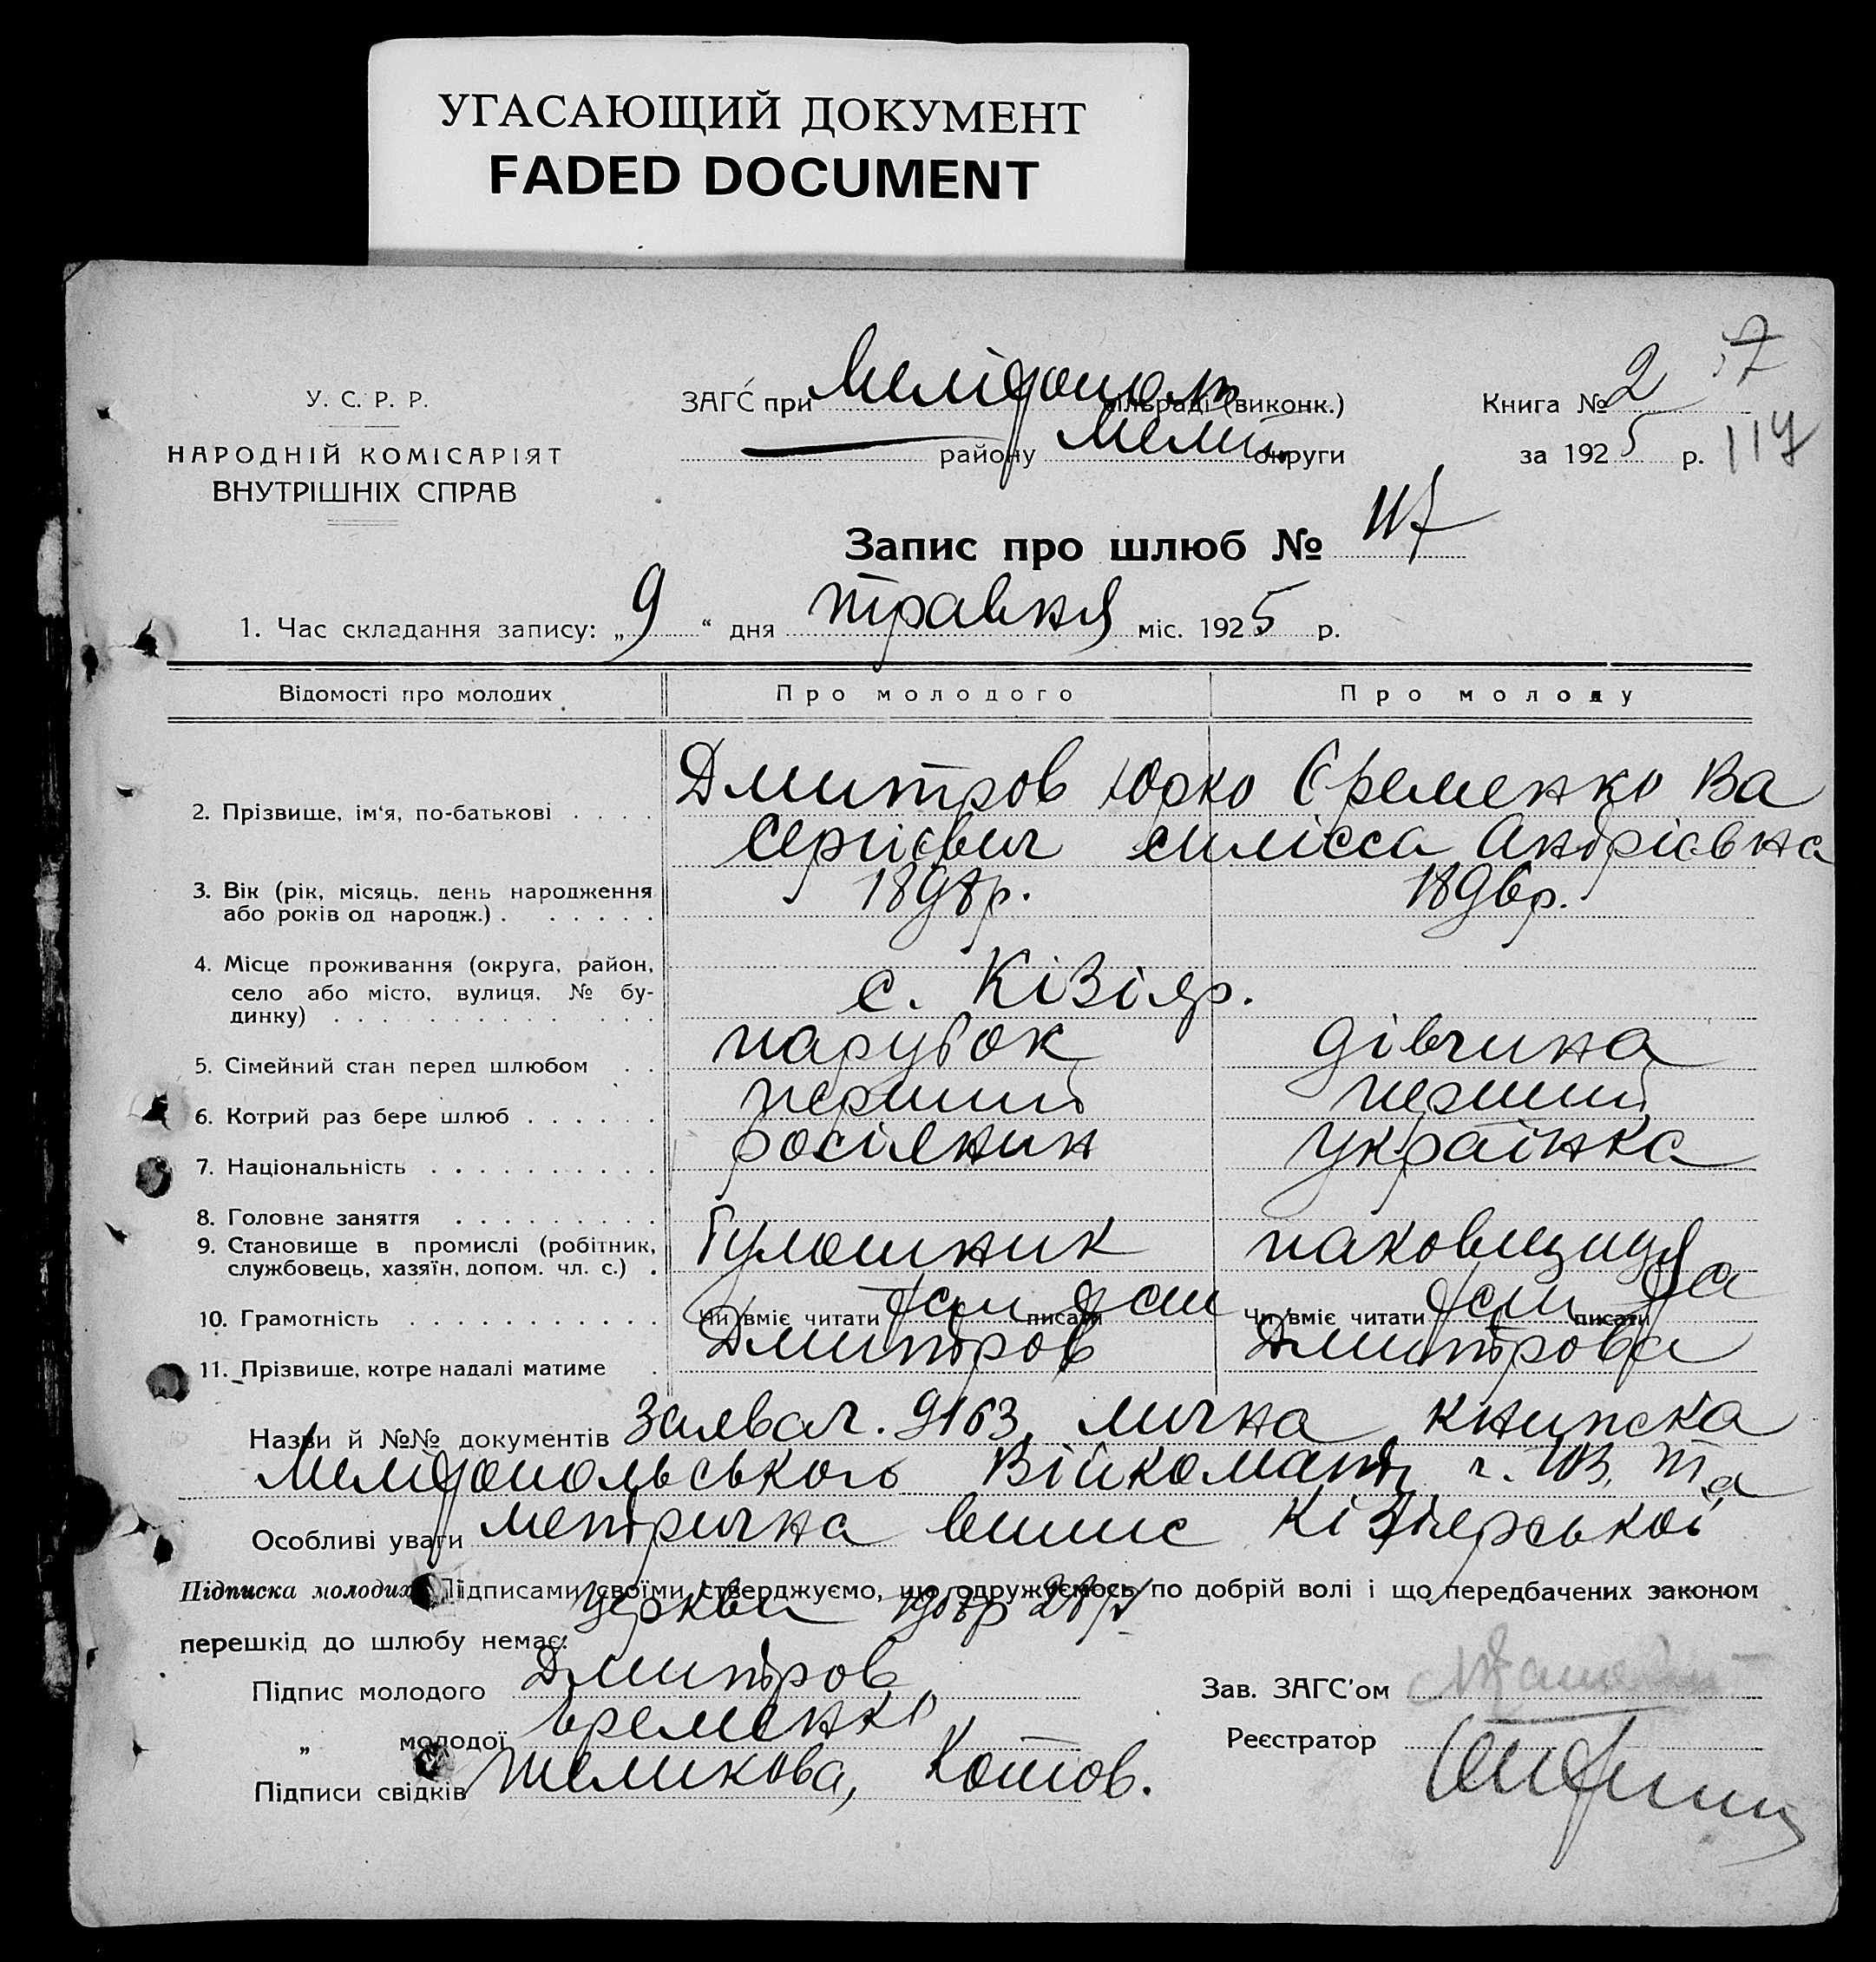 УГАСАЮЩИЙ ДОКУМЕНТ
FADED DOCUMENT
У. С. Р. Р.
НАРОДНІЙ КОМІСАРІЯТ
ВНУТРІШНІХ СПРАВ
ЗАГС при Мелітополь сільраді (виконк.)
району Меліт. округи
Книга № 2
за 1925 р.
117
Запис про шлюб № 117
1. Час складання запису: „ 9 “ дня травня міс. 1925 р.
Відомості про молодих Про молодого Про молоду
2. Прізвище, ім‘я, по-батькові Дмитров Юрко Єременко Ва
Сергієвич силісса Андрієвна
3. Вік (рік, місяць, день народження або років од народж.) 1898р. 1896р.
4. Місце проживання (округа, район, село або місто, вулиця, № будинку) с. Кізіяр.
5. Сімейний стан перед шлюбом парубок дівчина
6. Котрий раз бере шлюб перший перший
7. Національність росіянин українка
8. Головне заняття
9. Становище в промислі (робітник, службовець, хазяїн, допом. чл. с.) булошник паковщиця
10. Грамотність Чи вміє читати писати Чи вміє читати писати
11. Прізвище, котре надалі матиме Дмитров Дмитрова
Назви й №№ документів Заява ч. 9163, лична книжка
Мелітопольського Війкомату ч. та
Особливі уваги метрична випис Кізіярської
Підписка молодих: Підписами своїми стверджуємо, що одружуємось по добрій волі і що передбачених законом
церкви
перешкід до шлюбу немає:
Підпис молодого Дмитров
„ молодої Єременко
Підписи свідків Шеликова, Котов.
Зав. ЗАГС‘ом
Реєстратор